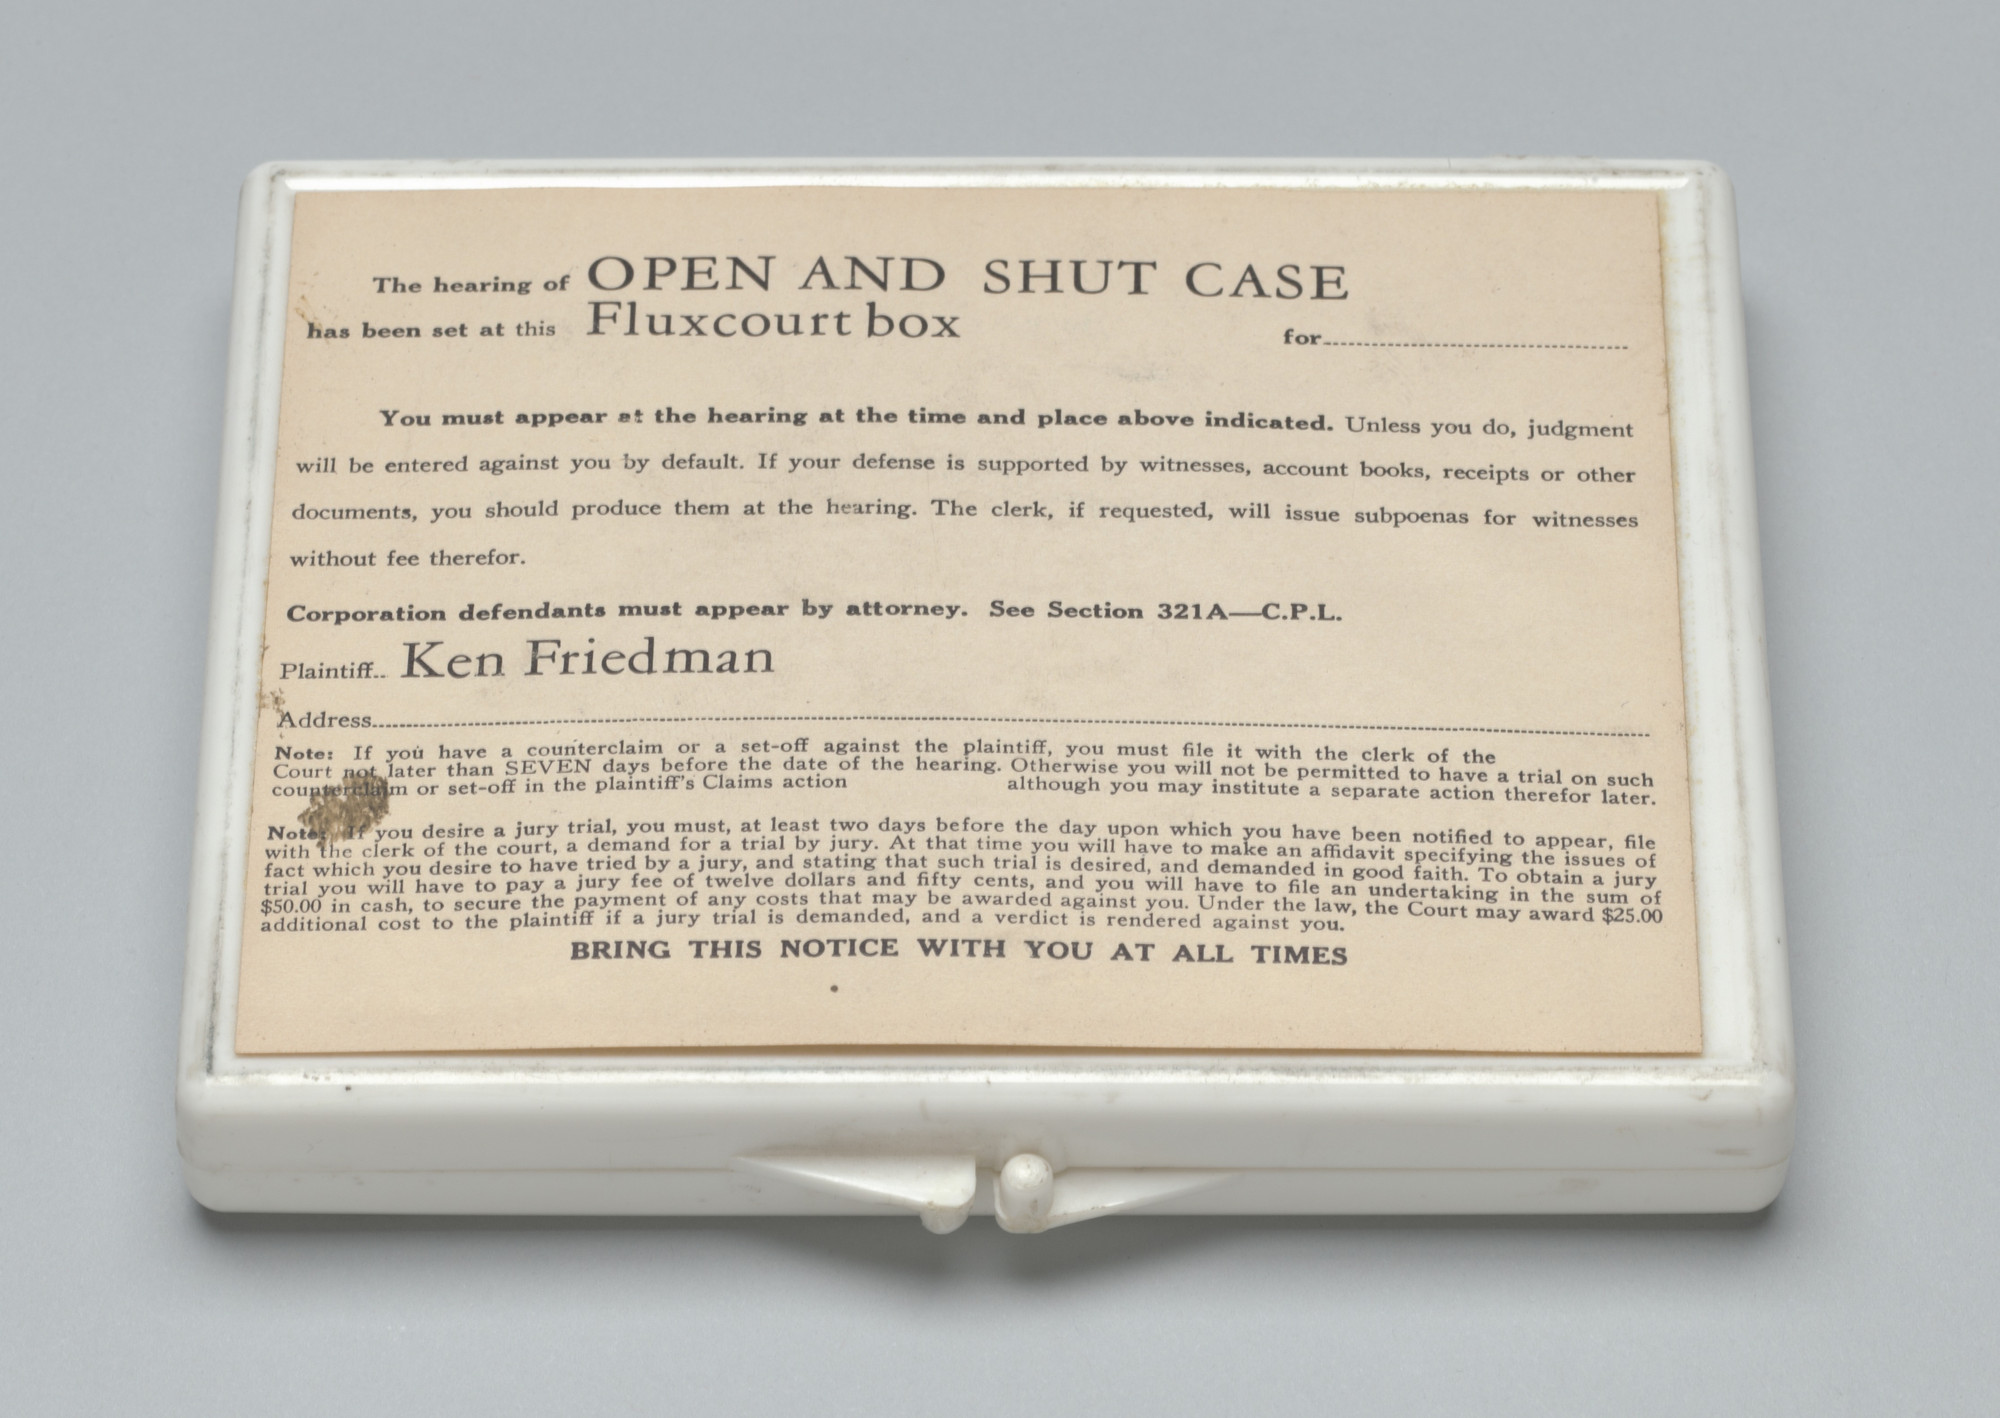 The hearing of OPEN AND SHUT CASE
has been set at this Fluxcourt box for
You must appear at the hearing at the time and place above indicated. Unless you do, judgment
will be entered against you by default. If your defense is supported by witnesses, account books, receipts or other
documents, you should produce them at the hearing. The clerk, if requested, will issue subpoenas for witnesses
without fee therefor.
Corporation defendants must appear by attorney. See Section 321A—C.P.L.
Plaintiff.. Ken Friedman
Address
Note: If you have a counterclaim or a set-off against the plaintiff, you must file it with the clerk of the
Court not later than SEVEN days before the date of the hearing. Otherwise you will not be permitted to have a trial on such
counterclaim or set-off in the plaintiff's Claims action although you may institute a separate action therefor later.
Note: If you desire a jury trial, you must, at least two days before the day upon which you have been notified to appear, file
with the clerk of the court, a demand for a trial by jury. At that time you will have to make an affidavit specifying the issues of
fact which you desire to have tried by a jury, and stating that such trial is desired, and demanded in good faith. To obtain a jury
trial you will have to pay a jury fee of twelve dollars and fifty cents, and you will have to file an undertaking in the sum of
$50.00 in cash, to secure the payment of any costs that may be awarded against you. Under the law, the Court may award $25.00
additional cost to the plaintiff if a jury trial is demanded, and a verdict is rendered against you.
BRING THIS NOTICE WITH YOU AT ALL TIMES